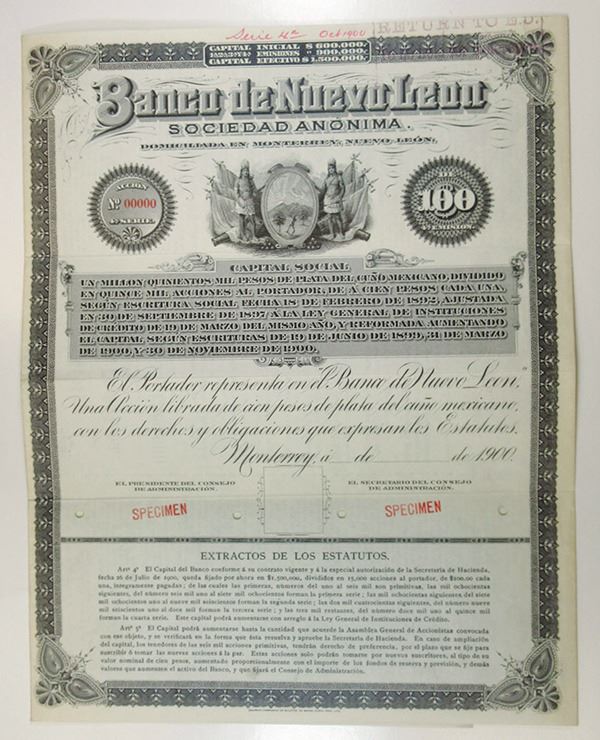 Serie 4a Oct 1900
RETURN TO E.D.
CAPITAL INICIAL $600.000.
EMISIONES " 900.000.
CAPITAL EFECTIVO $1.500.000.
Banco de Nuevo Leon
SOCIEDAD ANÓNIMA.
DOMICILIADA EN MONTERREY, NUEVO LEÓN.
ACCIÓN
No. 00000
4a SERIE.
DE
$100
4a EMISION.
CAPITAL SOCIAL
UN MILLON QUINIENTOS MIL PESOS DE PLATA DEL CUÑO MEXICANO, DIVIDIDO
EN QUINCE MIL ACCIONES AL PORTADOR, DE Á CIEN PESOS CADA UNA,
SEGÚN ESCRITURA SOCIAL FECHA 18 DE FEBRERO DE 1892, AJUSTADA
EN 30 DE SEPTIEMBRE DE 1897 Á LA LEY GENERAL DE INSTITUCIONES
DE CRÉDITO DE 19 DE MARZO DEL MISMO AÑO, Y REFORMADA AUMENTANDO
EL CAPITAL SEGÚN ESCRITURAS DE 19 DE JUNIO DE 1899, 31 DE MARZO
DE 1900, Y 30 DE NOVIEMBRE DE 1900.
El Portador representa en el "Banco de Nuevo Leon,"
Una Acción librada de cien pesos de plata del cuño mexicano,
con los derechos y obligaciones que expresan los Estatutos.
Monterrey, á de de 1900.
EL PRESIDENTE DEL CONSEJO
DE ADMINISTRACIÓN.
EL SECRETARIO DEL CONSEJO
DE ADMINISTRACIÓN.
SPECIMEN
SPECIMEN
EXTRACTOS DE LOS ESTATUTOS.
Arto 4o El Capital del Banco conforme á su contrato vigente y á la especial autorización de la Secretaría de Hacienda,
fecha 26 de Julio de 1900, queda fijado por ahora en $1,500,000, divididos en 15,000 acciones al portador, de $100.00 cada
una, íntegramente pagadas; de las cuales las primeras, números del uno al seis mil son primitivas, las mil ochocientas
siguientes, del número seis mil uno al siete mil ochocientos forman la primera serie; las mil ochocientas siguientes, del siete
mil ochocientos uno al nueve mil seiscientos forman la segunda serie; las dos mil cuatrocientas siguientes, del número nueve
mil seiscientos uno al doce mil forman la tercera serie; y las tres mil restantes, del número doce mil uno al quince mil
forman la cuarta Serie. Este capital podrá aumentarse con arreglo á la Ley General de Instituciones de Crédito.
Arto 5o El Capital podrá aumentarse hasta la cantidad que acuerde la Asamblea General de Accionistas convocada
con ese objeto, y se verificará en la forma que ésta resuelva y apruebe la Secretaría de Hacienda. En caso de ampliación
del capital, los tenedores de las seis mil acciones primitivas, tendrán derecho de preferencia, por el plazo que se fije para
suscribir ó tomar las nuevas acciones á la par. Estas acciones solo podrán tomarse por nuevos suscritores, al tipo de su
valor nominal de cien pesos, aumentado proporcionalmente con el importe de los fondos de reserva y previsión, y demás
valores que aumenten el activo del Banco, y que fijará el Consejo de Administración.